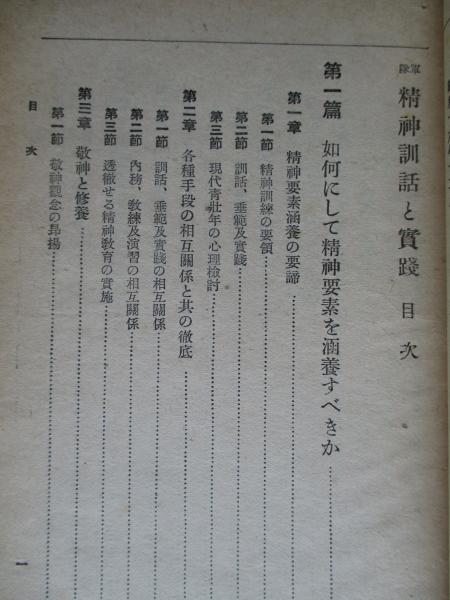 軍隊 精神訓話と實踐 目次
第一篇 如何にして精神要素を涵養すべきか
第一章 精神要素涵養の要諦
第一節 精神訓練の要領
第二節 訓話、垂範及實踐
第三節 現代青壯年の心理檢討
第二章 各種手段の相互關係と其の徹底
第一節 訓話、垂範及實踐の相互關係
第二節 內務、敎練及演習の相互關係
第三節 透徹せる精神敎育の實施
第三章 敬神と修養
第一節 敬神觀念の昂揚
目次
一